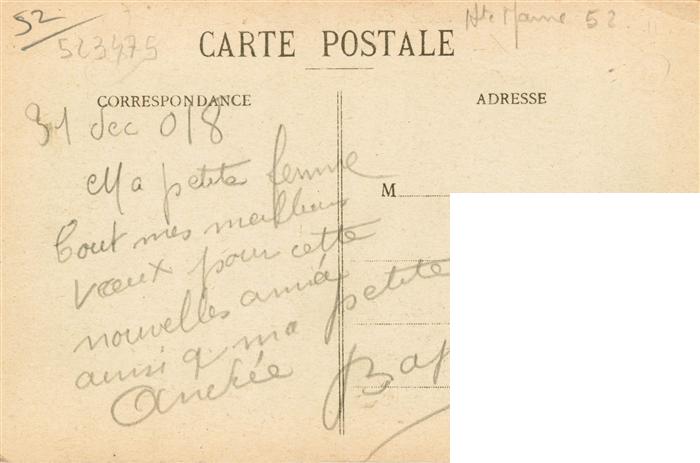 52
523475
Hte Marne 52
CARTE POSTALE
CORRESPONDANCE
ADRESSE
31 dec 018
Ma petite femme
M
tout mes meilleurs
vœux pour cette
nouvelles année
ainsi q ma petite
Andrée Bap